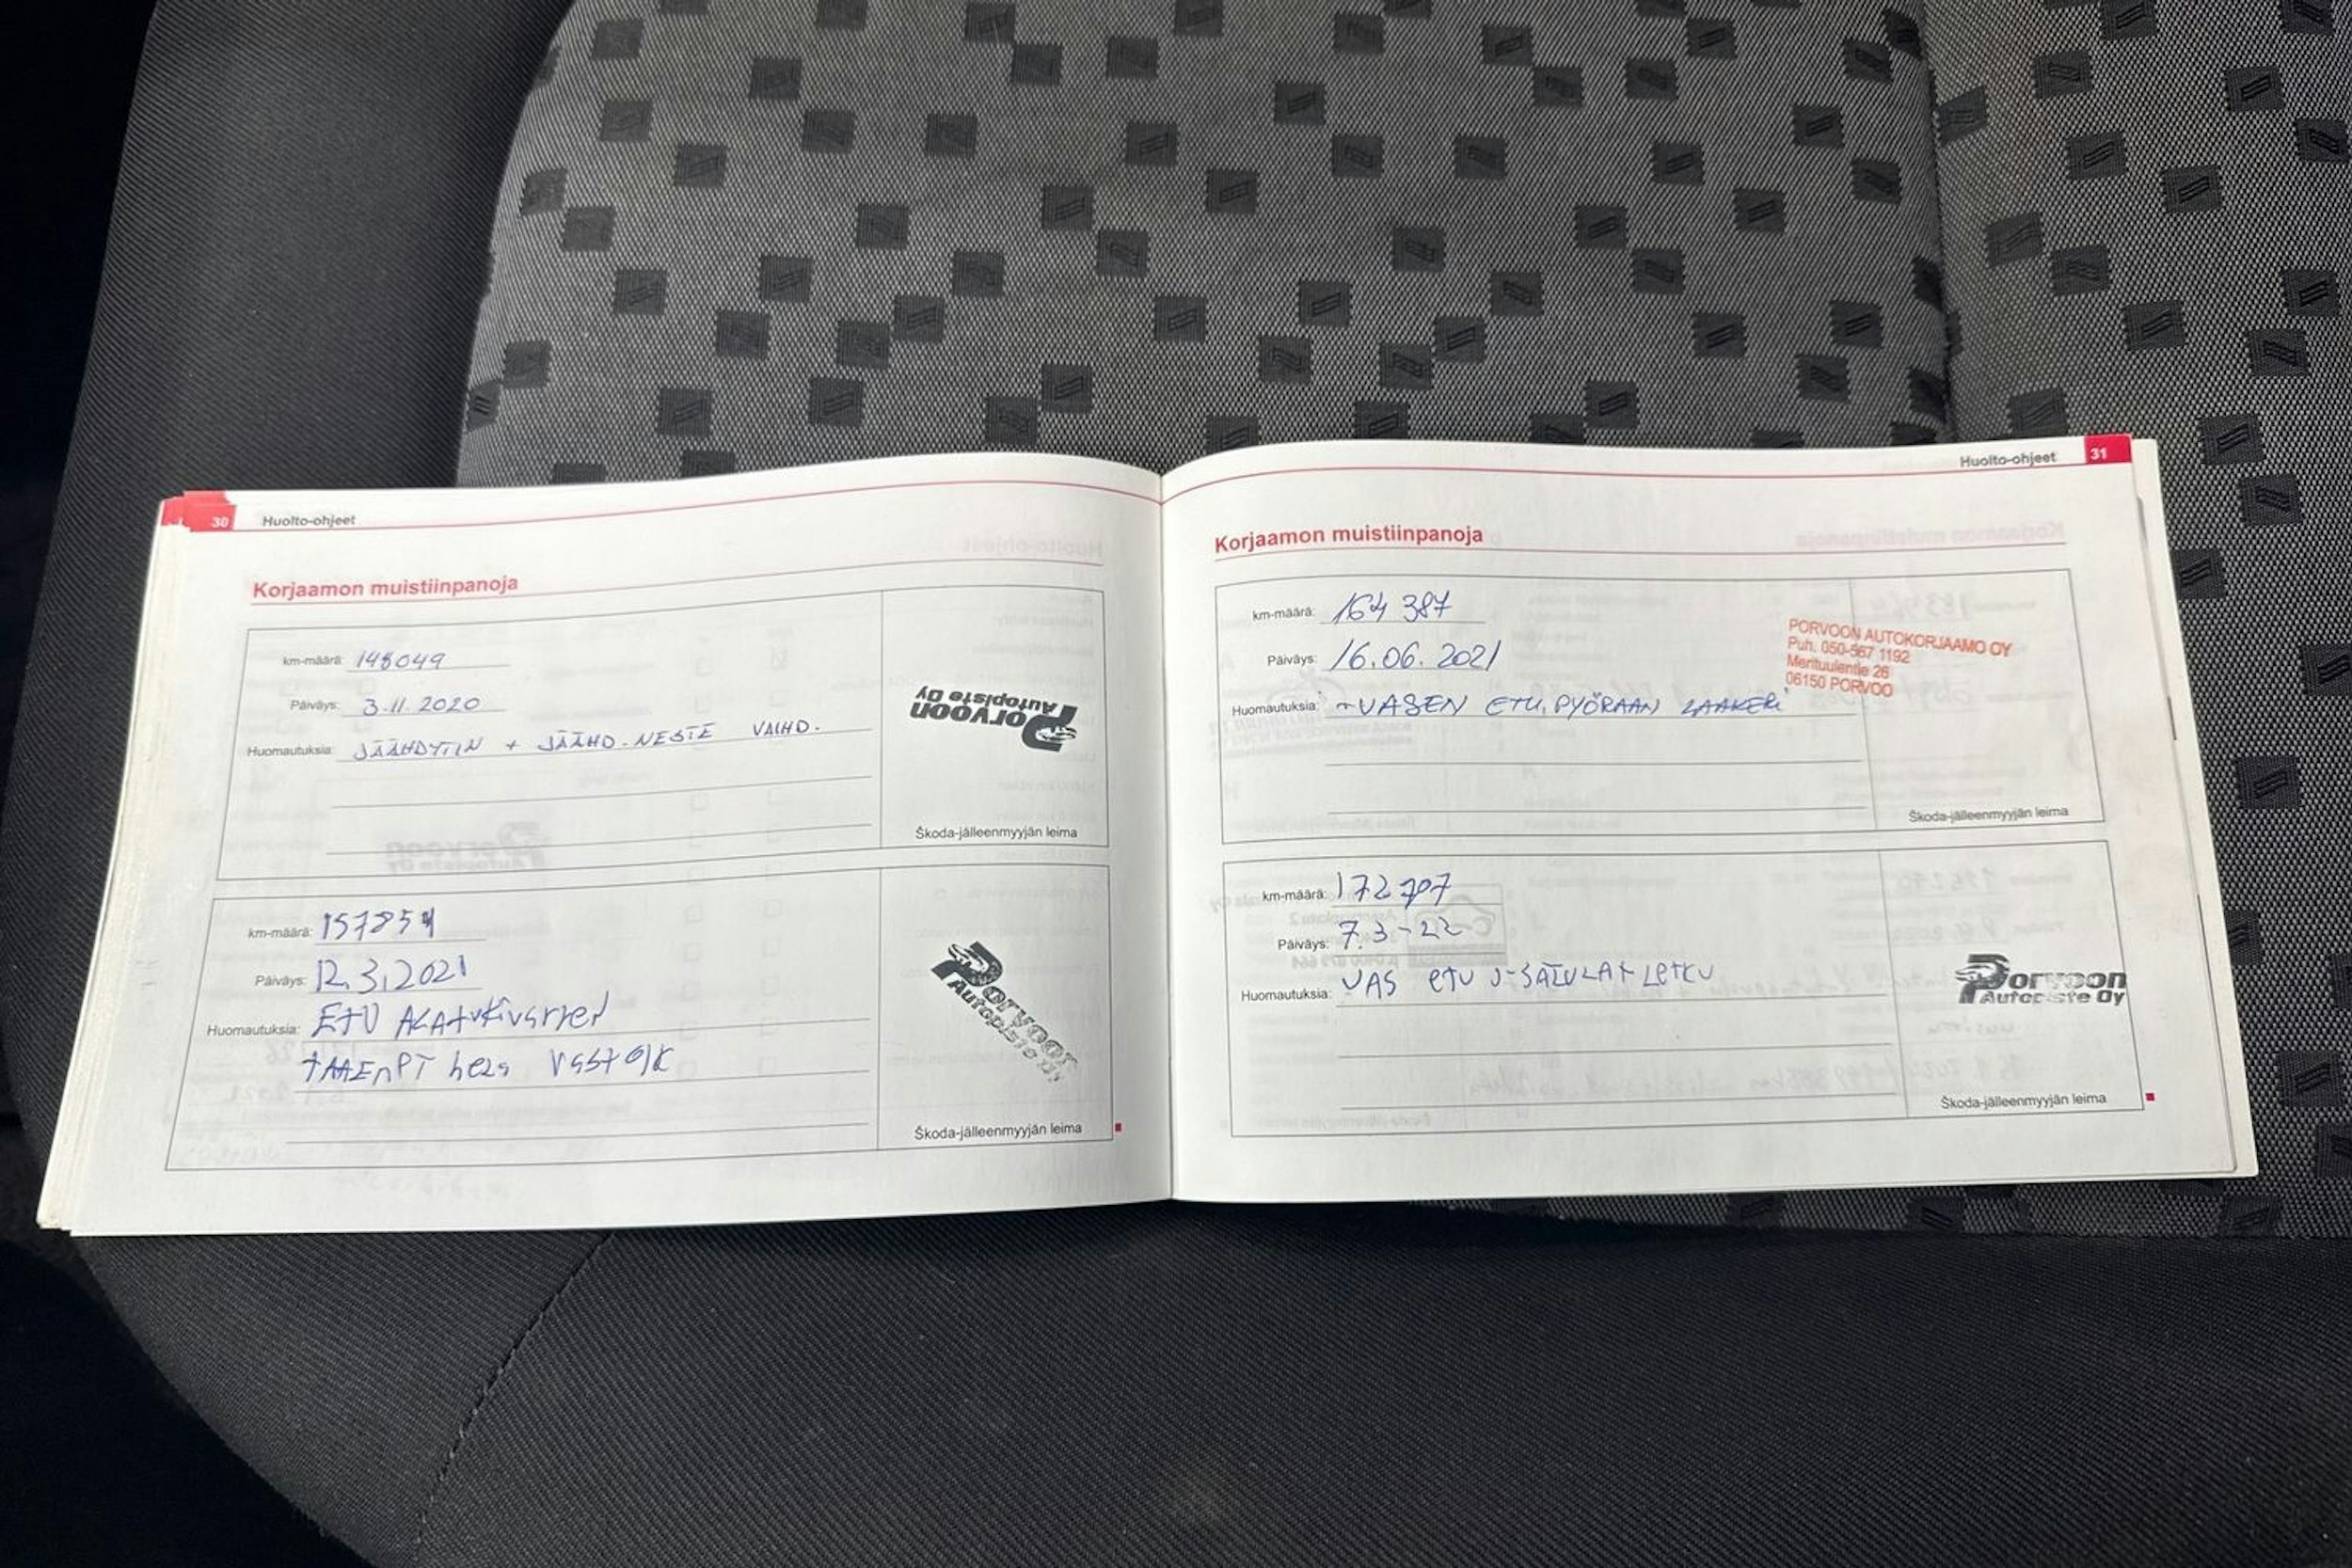 30 Huolto-ohjeet
Korjaamon muistiinpanoja
km-määrä: 148049
Päiväys: 3.11.2020
Huomautuksia: JÄÄHDYTIN + JÄÄHD.NESTE VAIHD.
Porvoon
Autopiste Oy
Škoda-jälleenmyyjän leima
km-määrä: 157854
Päiväys: 12.3.2021
Huomautuksia: ETU ALAtukivarren
Porvoon
Autopiste Oy
Škoda-jälleenmyyjän leima
Huolto-ohjeet 31
Korjaamon muistiinpanoja
km-määrä: 164 387
Päiväys: 16.06.2021
Huomautuksia: -VASEN ETU, PYÖRAAN LAAKERI
PORVOON AUTOKORJAAMO OY
Puh. 050-567 1192
Merituulentie 26
06150 PORVOO
Škoda-jälleenmyyjän leima
km-määrä: 172707
Päiväys: 7.3-22
Huomautuksia: VAS etu J-SATULA+LetKU
Porvoon
Autopiste Oy
Škoda-jälleenmyyjän leima